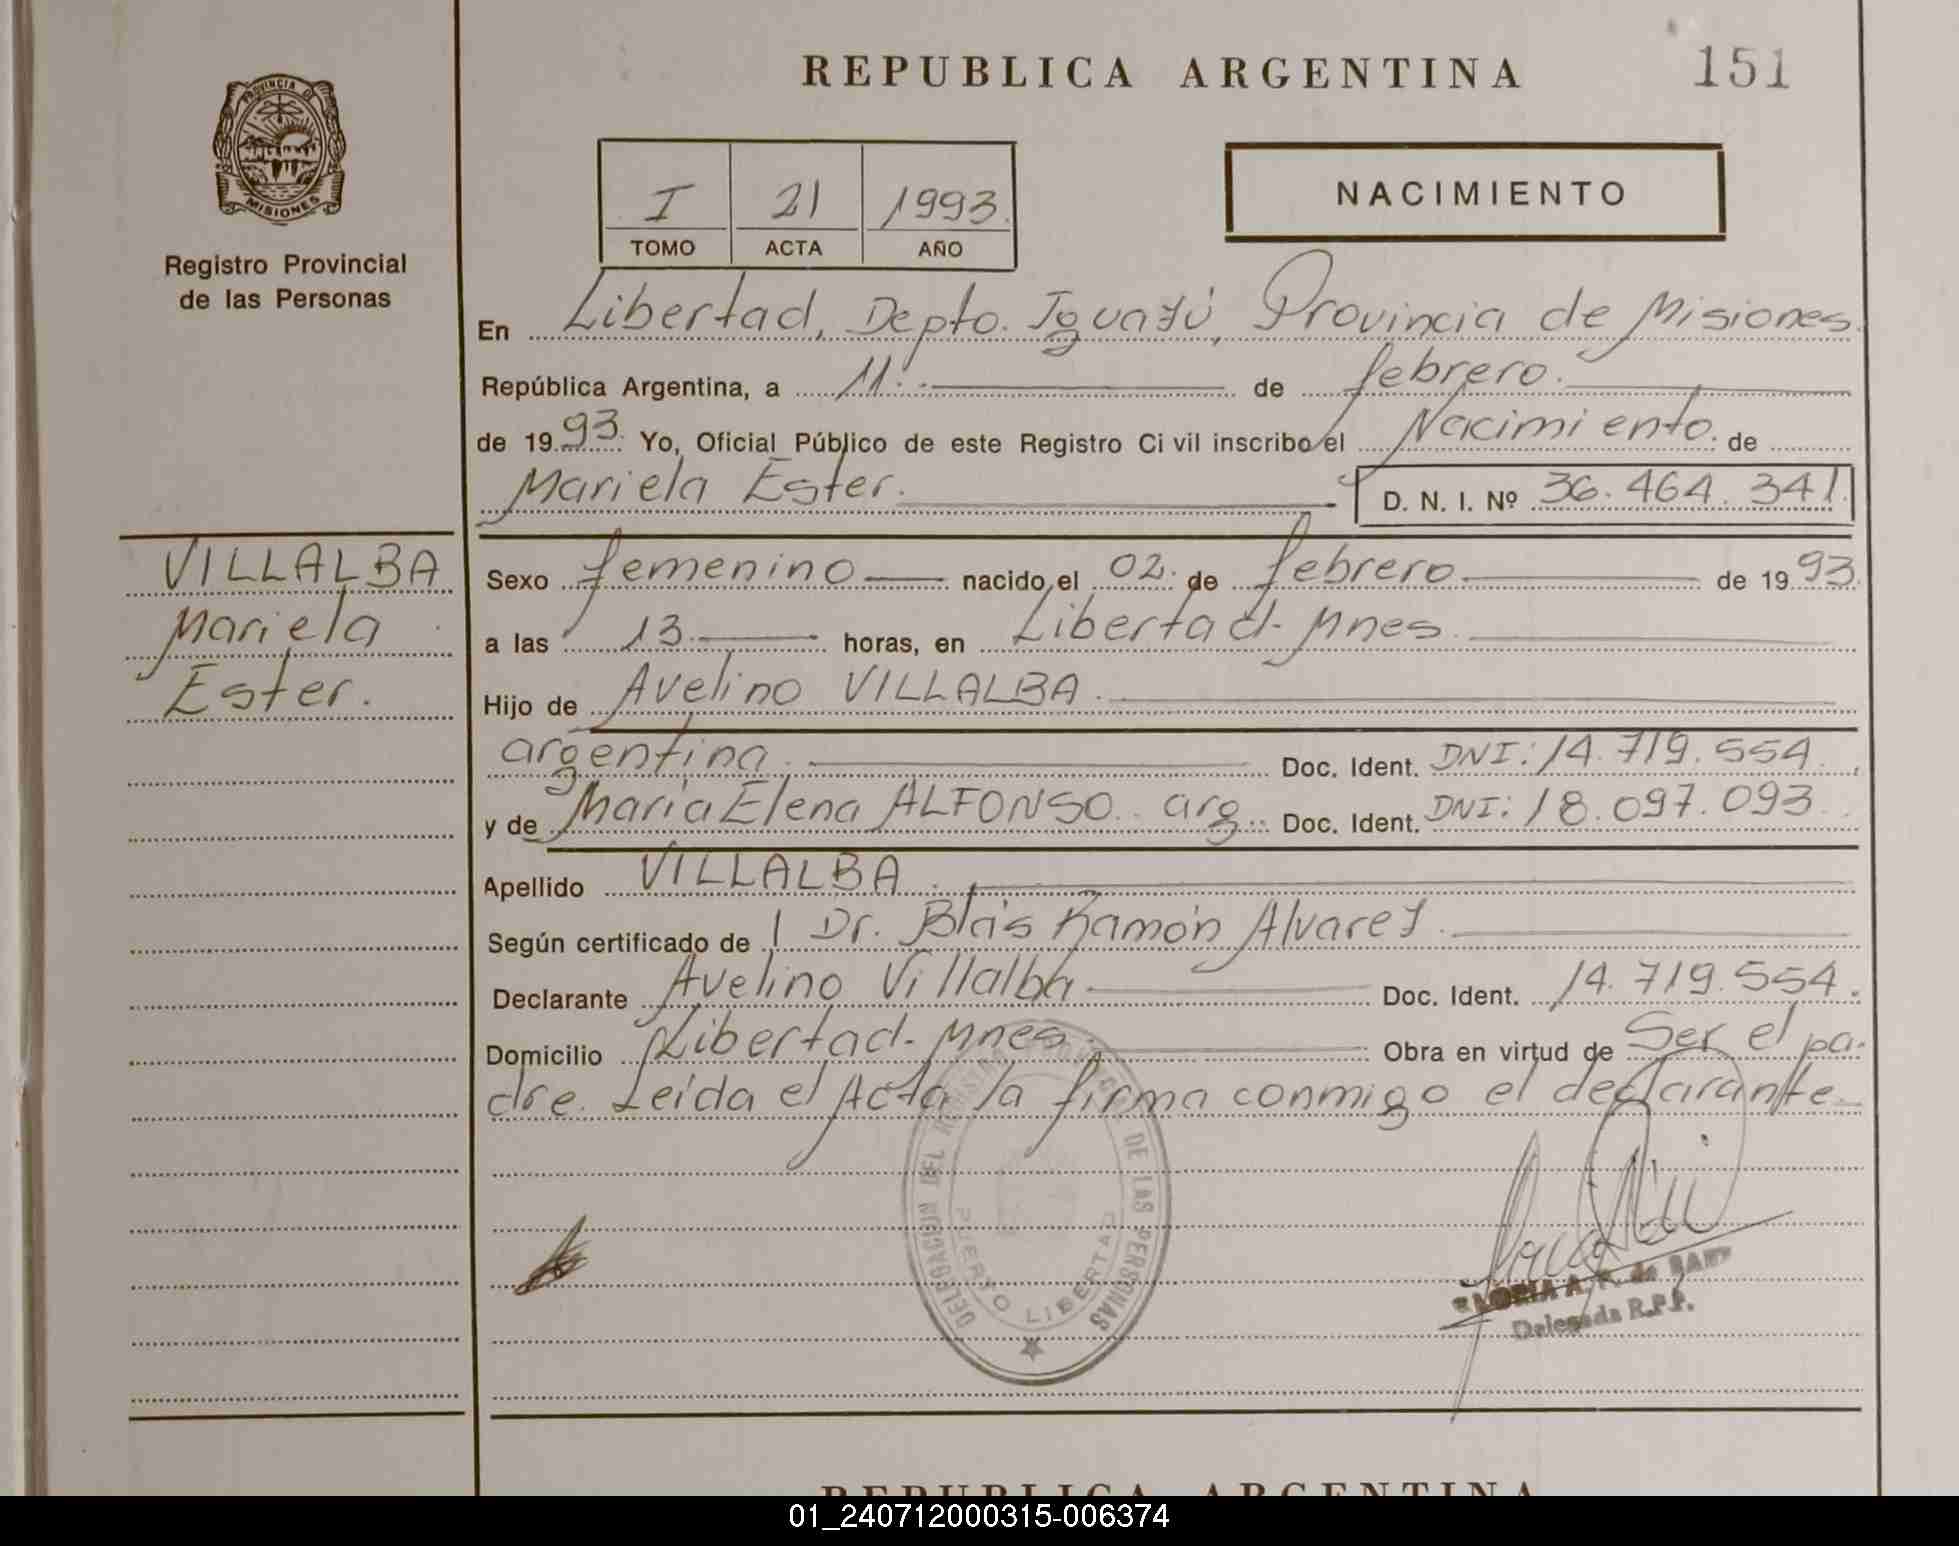 REPUBLICA ARGENTINA
151
PROVINCIA D
MISIONES
Registro Provincial
de las Personas
I 21 1993.
TOMO ACTA AÑO
NACIMIENTO
En Libertad, Depto. Iguazú, Provincia de Misiones.
República Argentina, a 11 de febrero.
de 1993. Yo, Oficial Público de este Registro Civil inscribo el Nacimiento. de
Mariela Ester.
D. N. I. Nº 36.464.341.
VILLALBA
Mariela
Ester.
Sexo femenino nacido el 02 de febrero de 1993.
a las 13 horas, en Libertad - Mnes.
Hijo de Avelino VILLALBA.
argentina. Doc. Ident. DNI: 14.719.554.
y de María Elena ALFONSO. arg. Doc. Ident. DNI: 18.097.093
Apellido VILLALBA.
Según certificado de Dr. Blás Ramón Alvarez.
Declarante Avelino Villalba Doc. Ident. 14.719.554.
Domicilio Libertad - Mnes. Obra en virtud de Ser el pa-
dre. Leída el Acta la firma conmigo el declarante
DELEGACION DEL REGISTRO PROVINCIAL DE LAS PERSONAS
PUERTO LIBERTAD
GLORIA A.
Delegada R.P.P.
REPUBLICA ARGENTINA
01_240712000315-006374